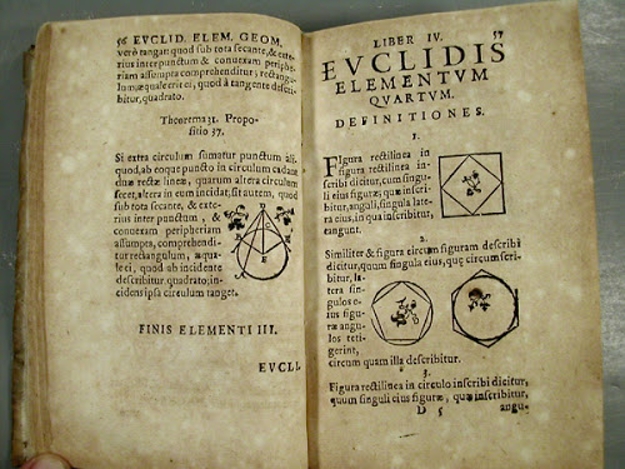 56 EVCLID. ELEM. GEOM.
verò tangat: quod sub tota secante, & exte-
rius inter punctum & conuexam periphe-
riam assumpta comprehenditur, rectangu-
lum, æquale erit ei, quod à tangente descri-
bitur, quadrato.
Theorema 31. Propo-
sitio 37.
Si extra circulum sumatur punctum ali-
quod, ab eoque puncto in circulum cadant
duæ rectæ lineæ, quarum altera circulum
secet, altera in eum incidat, sit autem, quod
sub tota secante, & exte-
rius inter punctum, &
conuexam peripheriam
assumpta, comprehendi-
tur rectangulum, æqua-
le ei, quod ab incidente
describitur, quadrato; in-
cidens ipsa circulum tanget.
FINIS ELEMENTI III.
EVCLI.
LIBER IV. 57
EVCLIDIS
ELEMENTVM
QVARTVM.
DEFINITIONES.
1.
FIgura rectilinea in
figura rectilinea in-
scribi dicitur, cum singu-
li eius figuræ, quæ inscri-
bitur, anguli, singula late-
ra eius, in qua inscribitur,
tangunt.
2.
Similiter & figura circum figuram describi
dicitur, quum singula eius, quę circumscri-
bitur, la-
tera sin-
gulos e-
ius figu-
ræ angu-
los teti-
gerint,
circum quam illa describitur.
3.
Figura rectilinea in circulo inscribi dicitur,
quum singuli eius figuræ, quæ inscribitur,
D 5 angu-